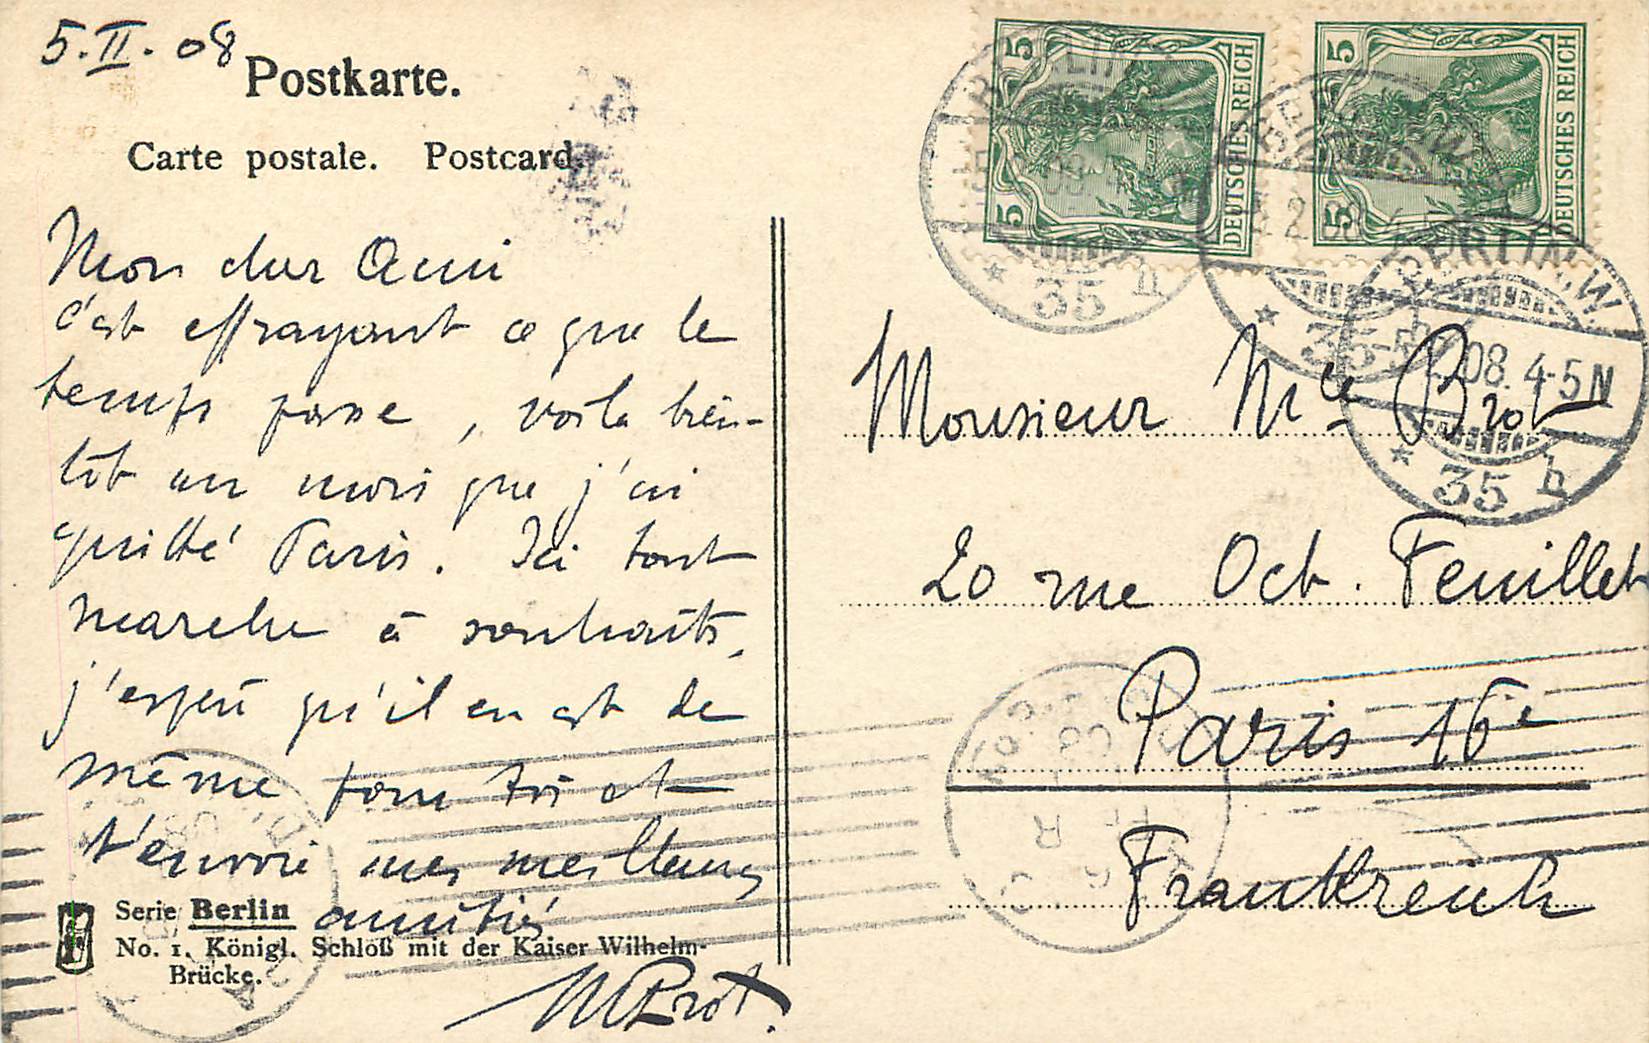 5.II.08
Postkarte.
Carte postale. Postcard.
Mon cher Ami
c'est effrayant ce que le
temps passe, voila bien-
tôt un mois que j'ai
quitté Paris. Ici tout
marche à souhaits,
j'espère qu'il en est de
même pour toi et
t'envoie mes meilleures
amitiés
Serie Berlin
No. 1. Königl. Schloß mit der Kaiser Wilhelm-
Brücke.
DEUTSCHES REICH
5
5
DEUTSCHES REICH
5
5
BERLIN
35
BERLIN, W.
35
BERLIN, W.
08. 4-5 N
35 b
Monsieur Mce Brot
20 rue Oct. Feuillet
Paris 16e
Frankreich